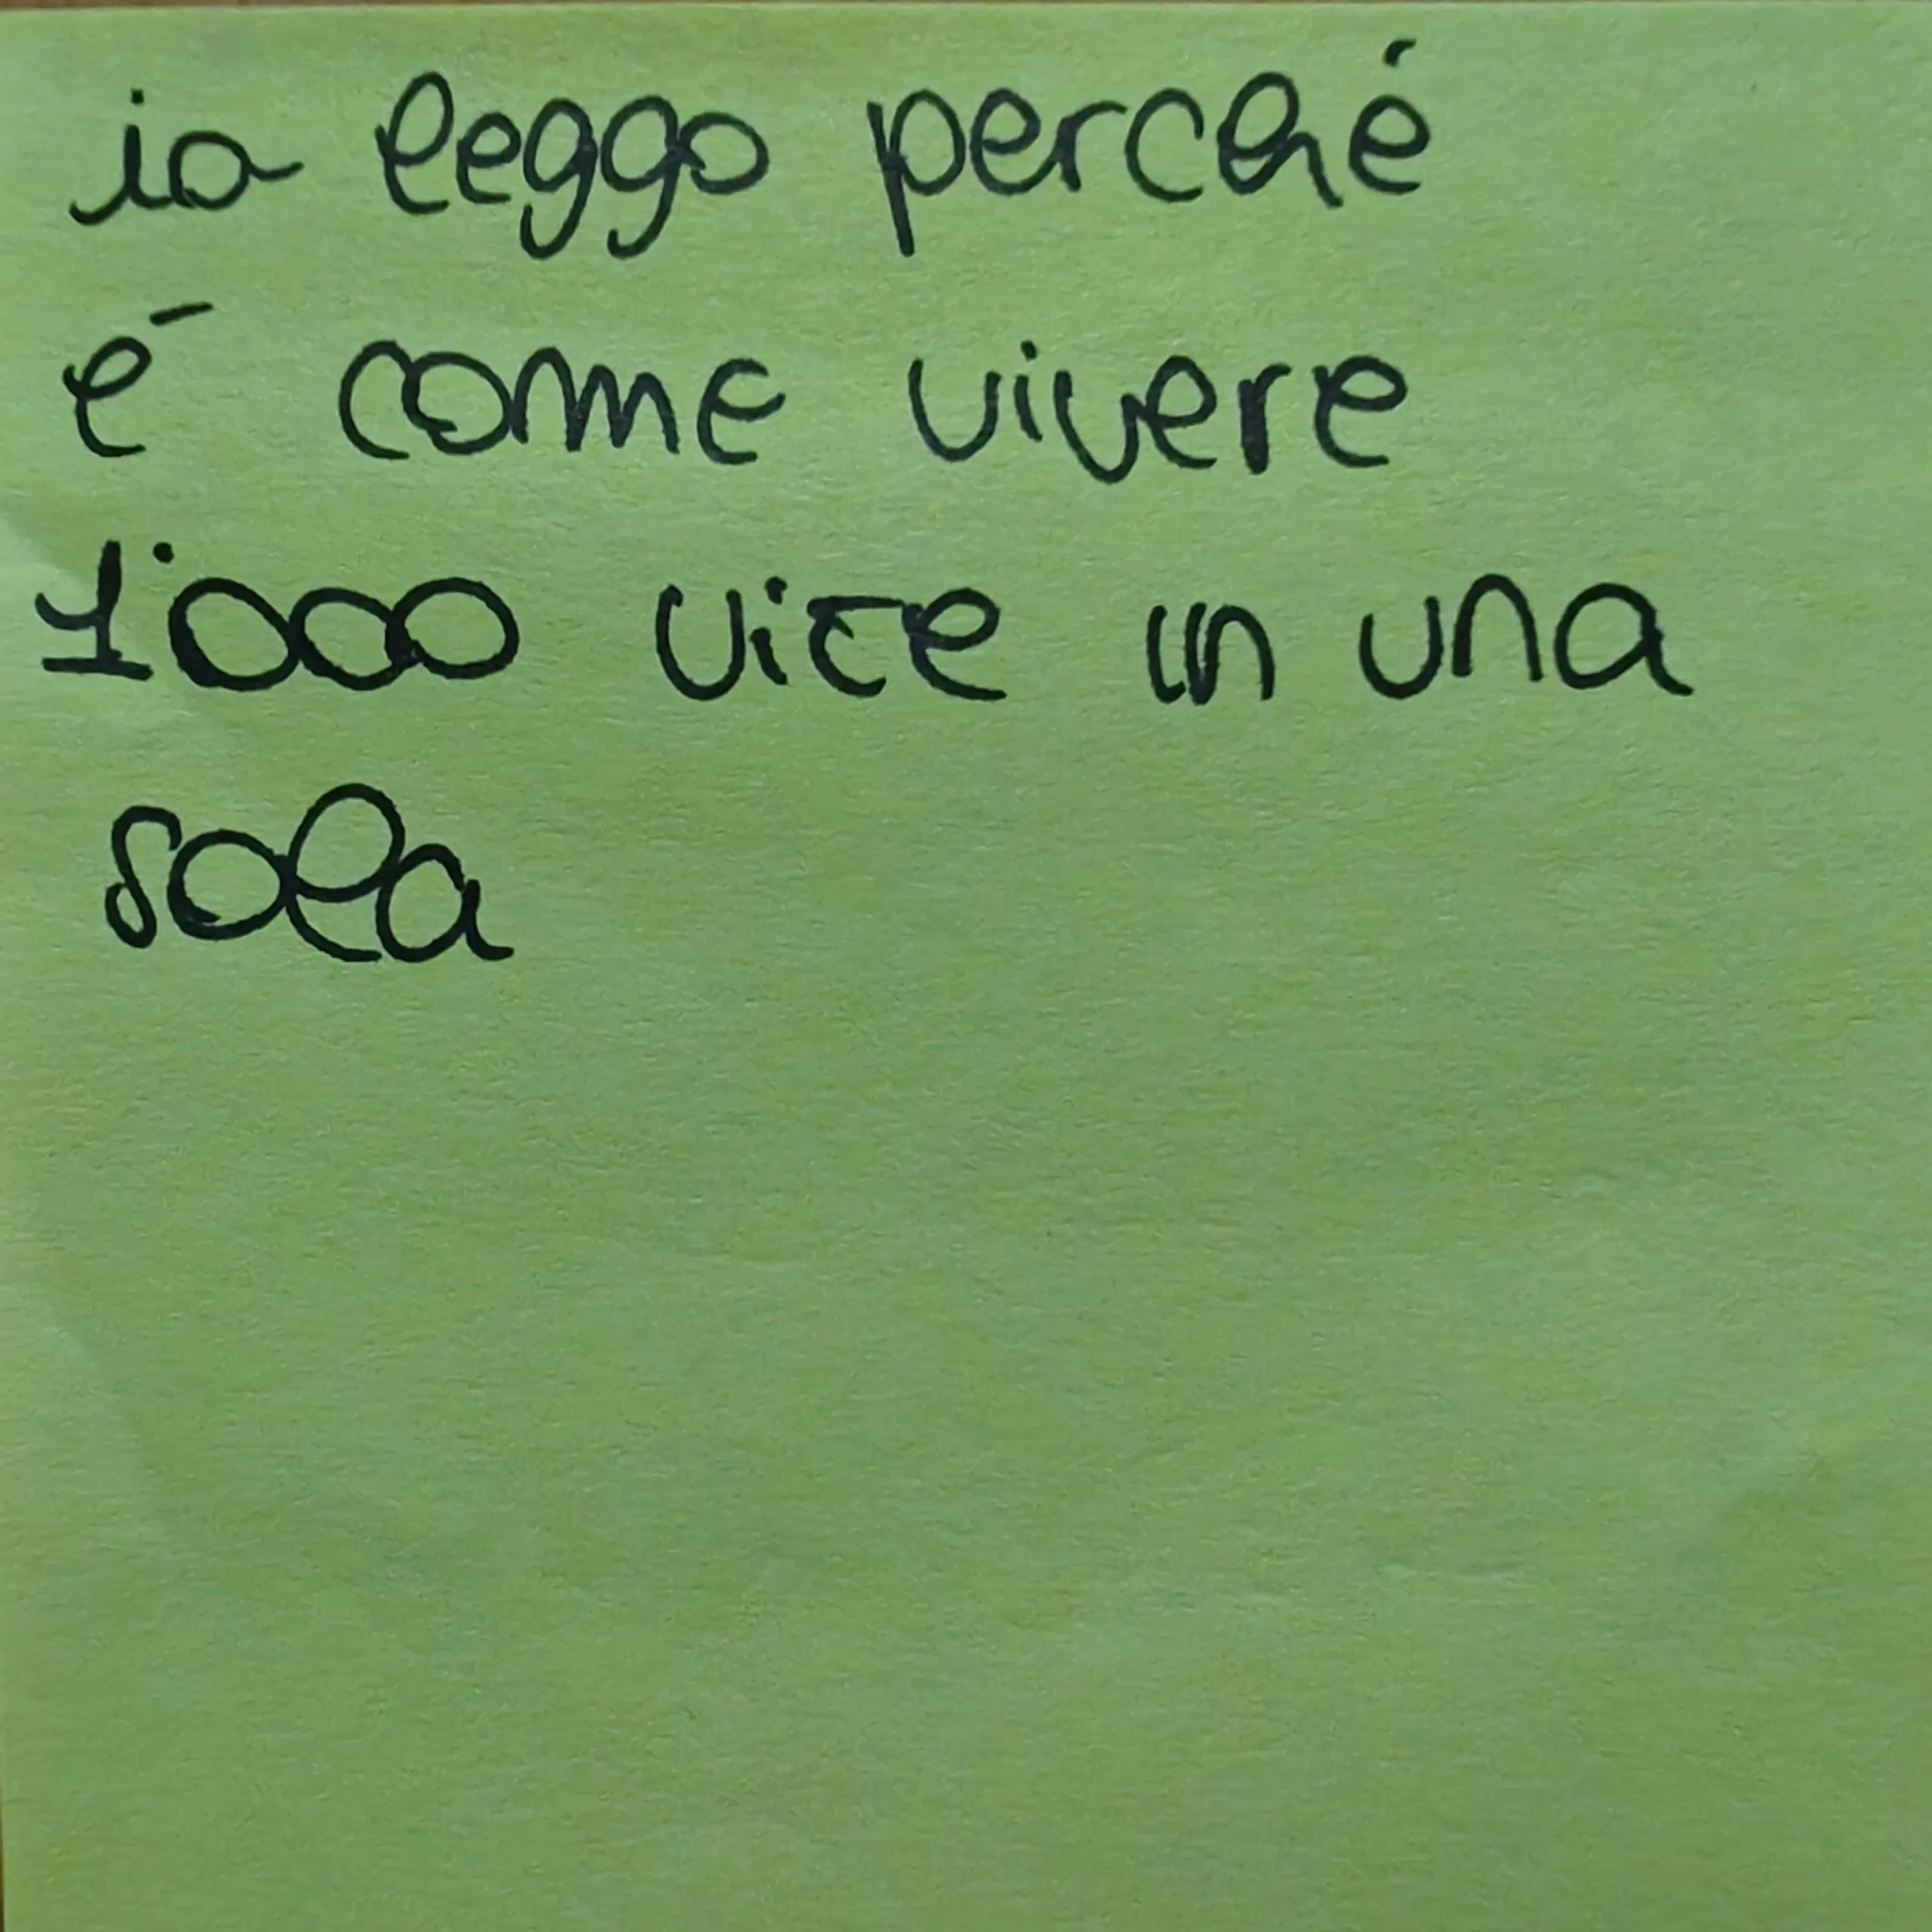 io leggo perché
é come vivere
1'000 vite in una
sola